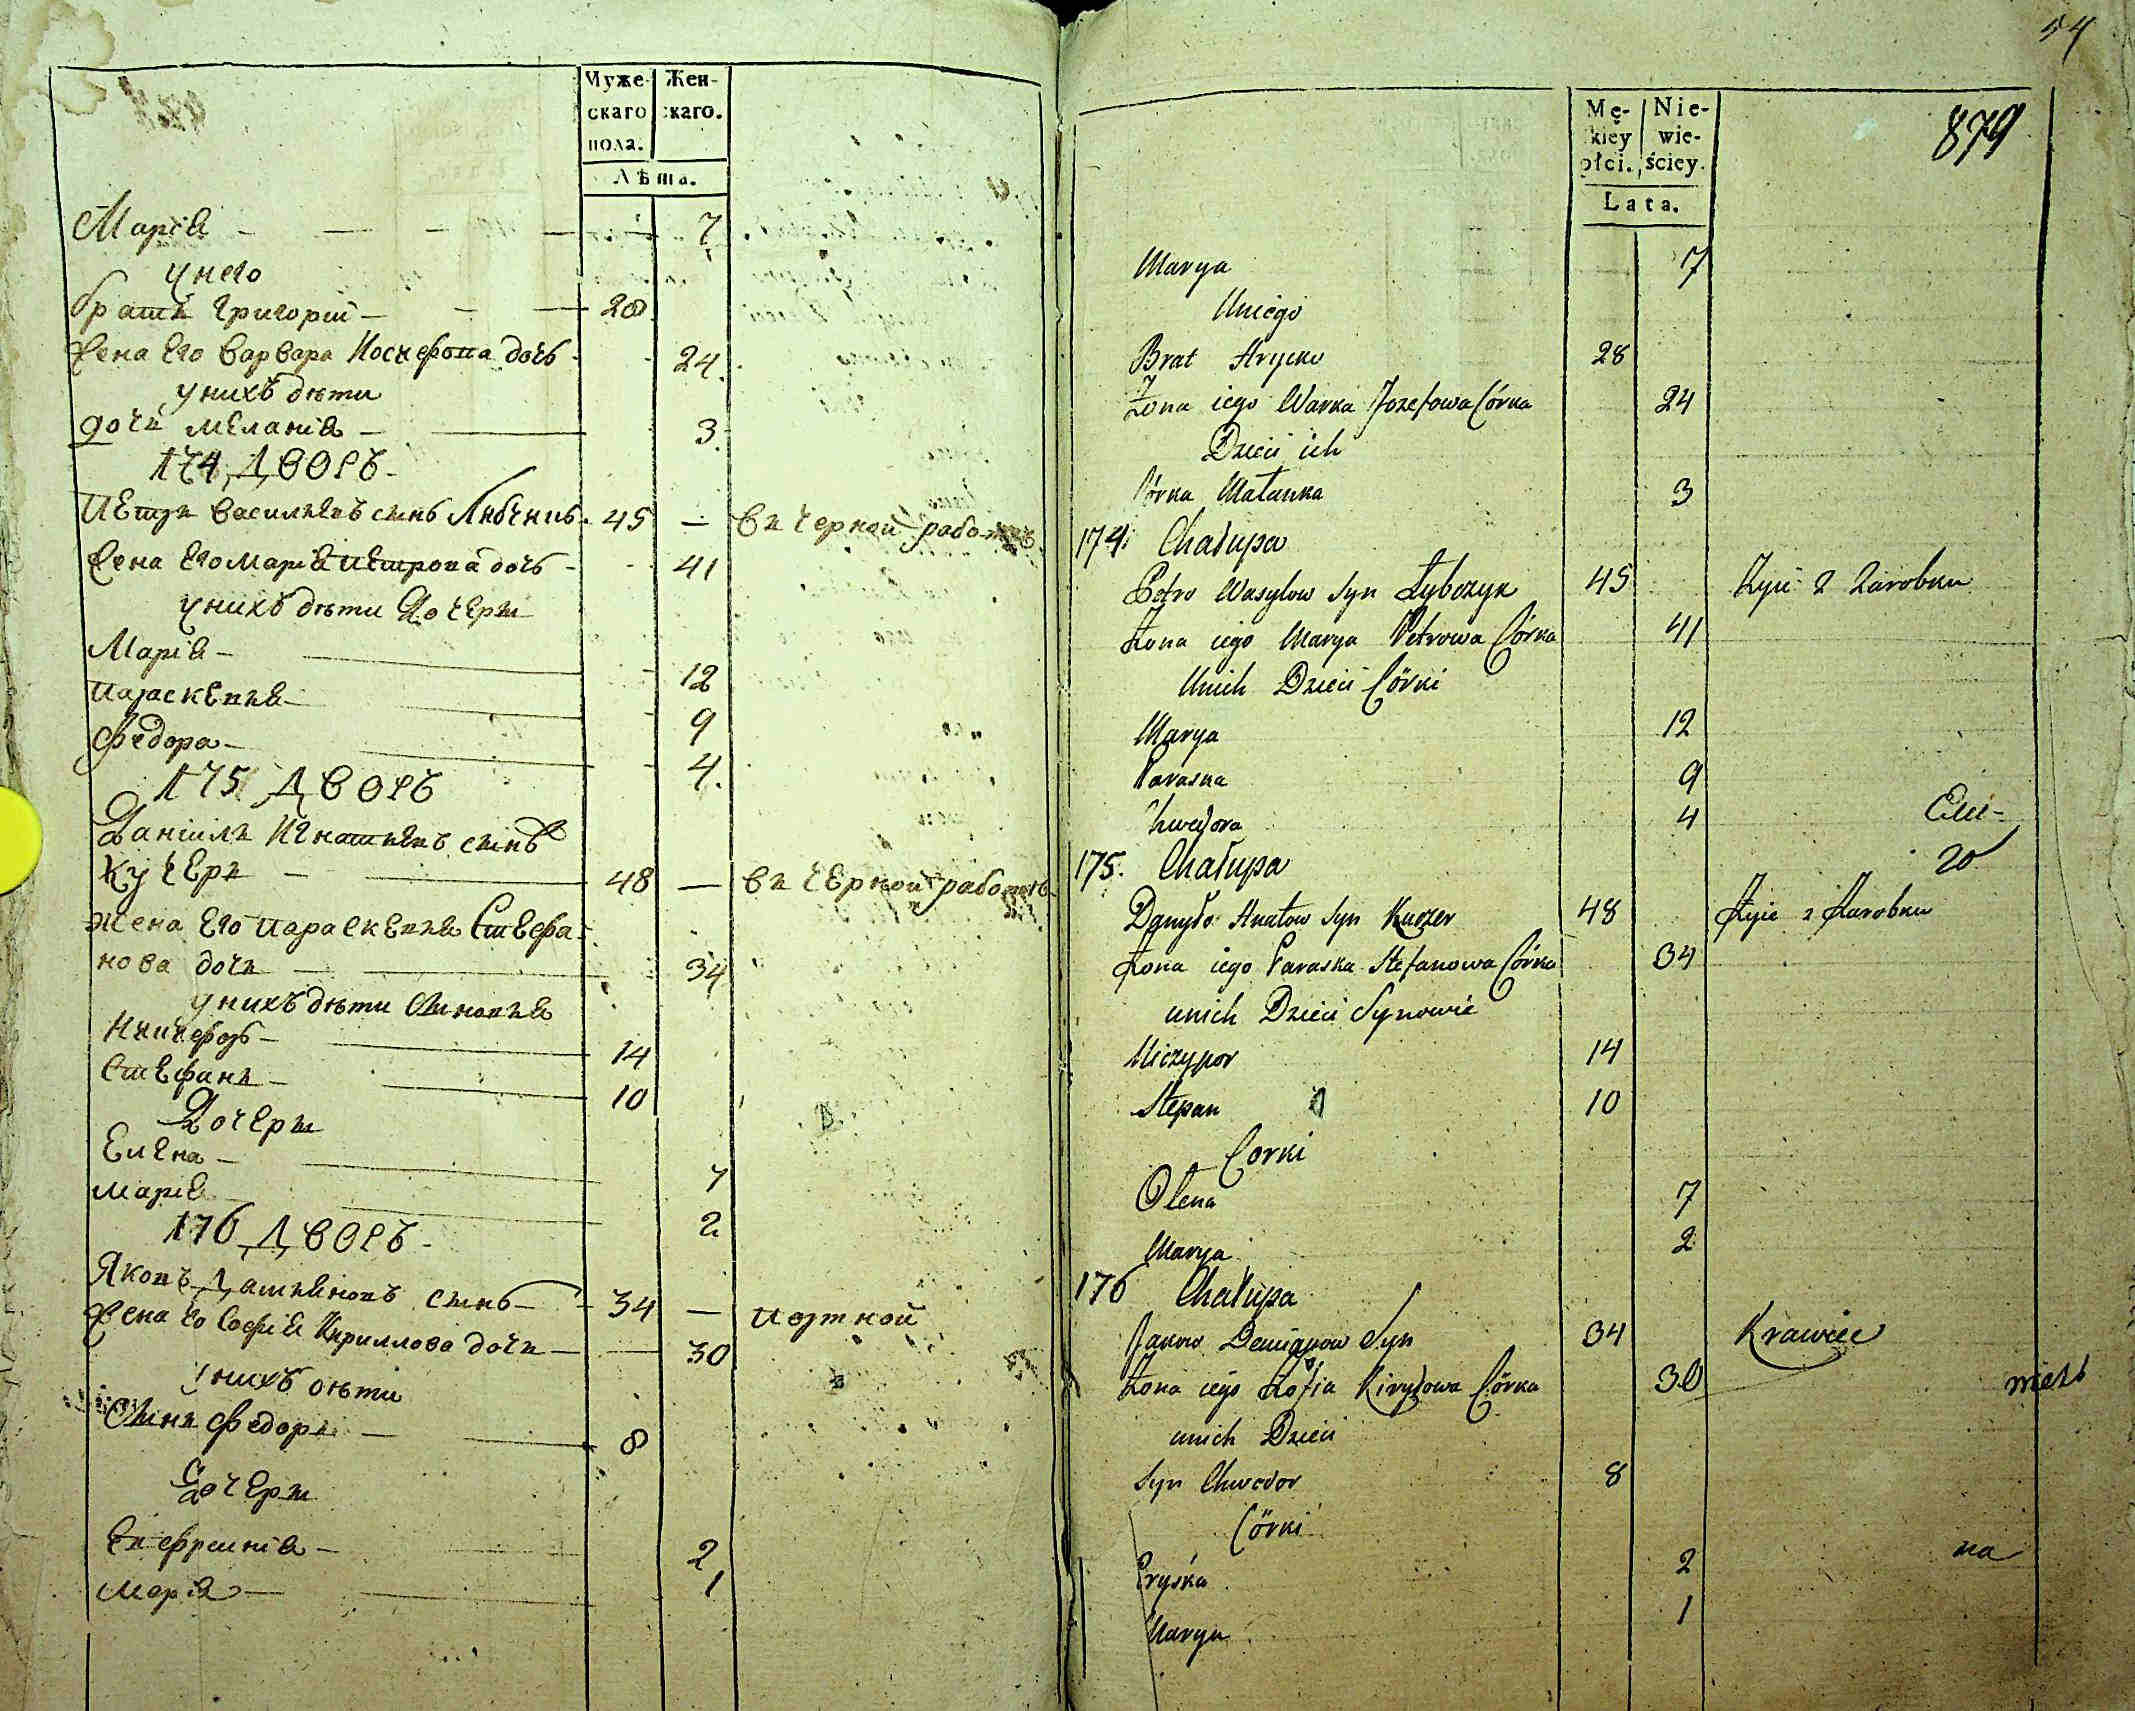 Муже-
скаго
пола.
Жен-
скаго.
Лѣта.
Маріѧ 7
у него
братъ Григорій 28
жена его Варвара Иосифова дочь 24
у нихъ дѣти
дочь Меланія 3
174 Дворъ
Петръ Васильевъ сынъ Любчикъ 45 — въ черной работѣ
жена его Марія Петрова дочь 41
у нихъ дѣти дочери
Марія 12
Параскевія 9
Федора 4
175 Дворъ
Даніилъ Игнатьевъ сынъ
Кучеръ 48 — въ черной работѣ
жена его Параскевія Стефа-
нова дочь 34
у нихъ дѣти сыновья
Никифоръ 14
Стефанъ 10
Дочери
Елена 7
Марія 2
176 Дворъ
Яковъ Даміановъ сынъ 34 — портной
жена его Софія Кириллова дочь 30
у нихъ дѣти
Сынъ Федоръ 8
Дочери
Евфросинія 2
Марія 1
54
879
Mę-
kiey
płci.
Nie-
wie-
ściey.
Lata.
Marya 7
Uniego
Brat Hrycko 28
Żona iego Warka Jozefowa Córka 24
Dzieci ich
Córka Małanka 3
174. Chałupa
Petro Wasylow Syn Łybczyk 45 Żyie z Zarobku
Żona iego Marya Petrowa Córka 41
Unich Dzieci Córki
Marya 12
Paraska 9
Chwedora 4
175. Chałupa 20
Danyło Hnatow Syn Kuczer 48 Żyie z Zarobku
Żona iego Paraska Stefanowa Córka 34
unich Dzieci Synowie
Niczypor 14
Stepan 10
Corki
Olena 7
Marya 2
176 Chałupa
Jakow Demianow Syn 34 Krawiec
Żona iego Zofia Kiryłowa Córka 30
unich Dzieci
Syn Chwedor 8
Córki
Pryśka 2 na
Marya 1